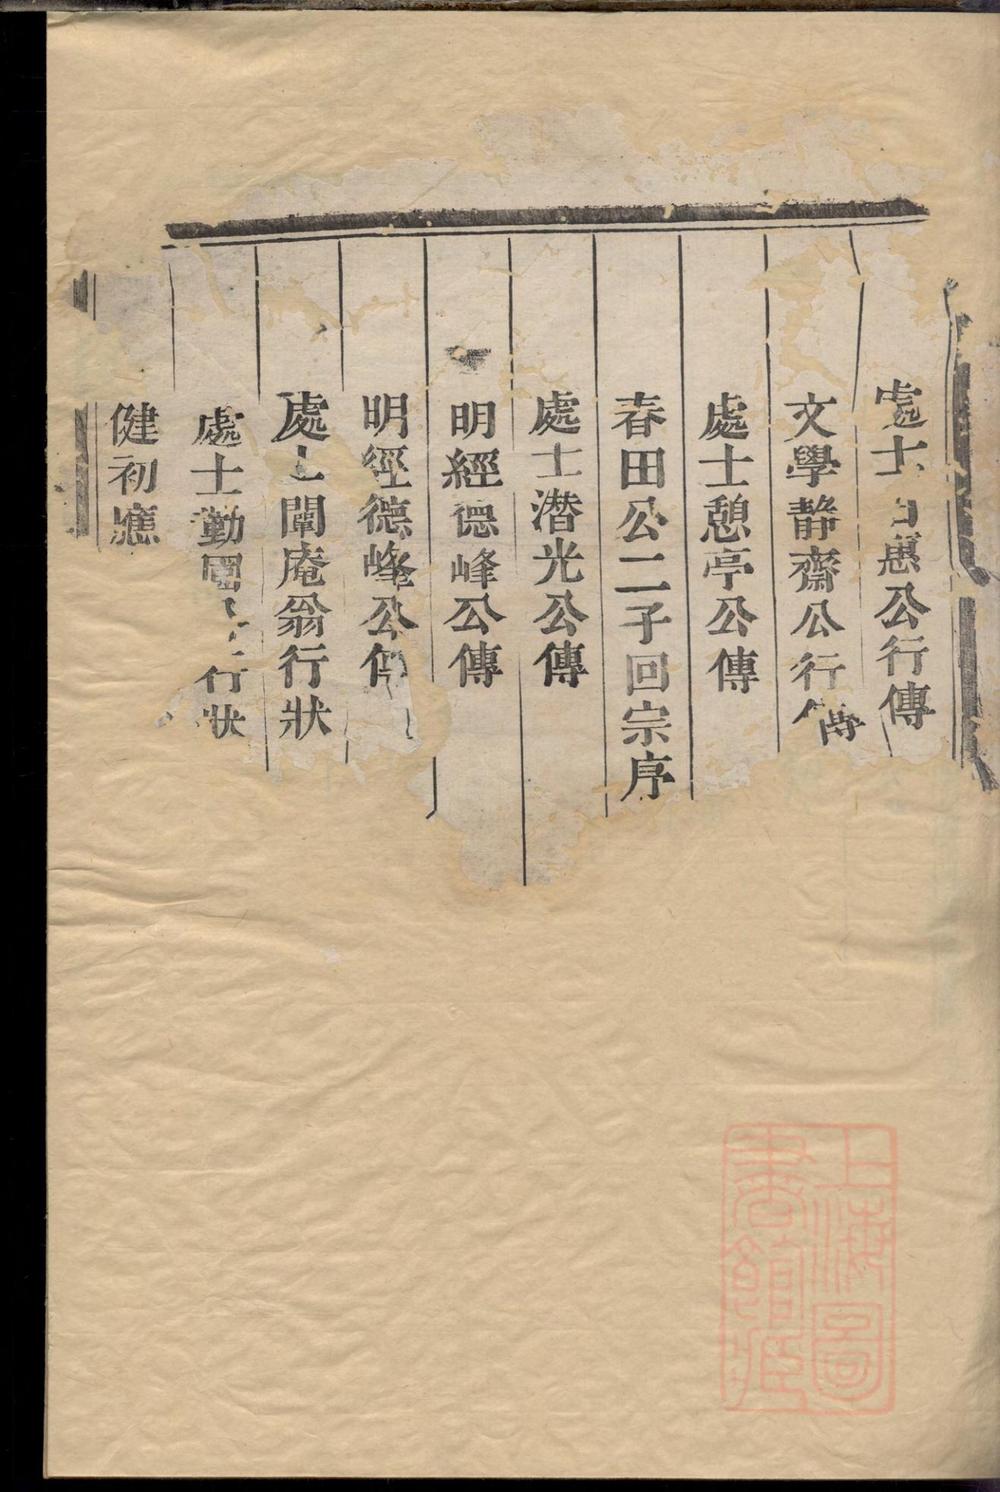 處士惠公行傳
文學靜齋公行傳
處士憩亭公傳
春田公二子回宗序
處士潜光公傳
明經德峰公傳
明經德峰公傳
處士闇庵翁行狀
處士勤園行狀
健初應
上海圖
書館藏